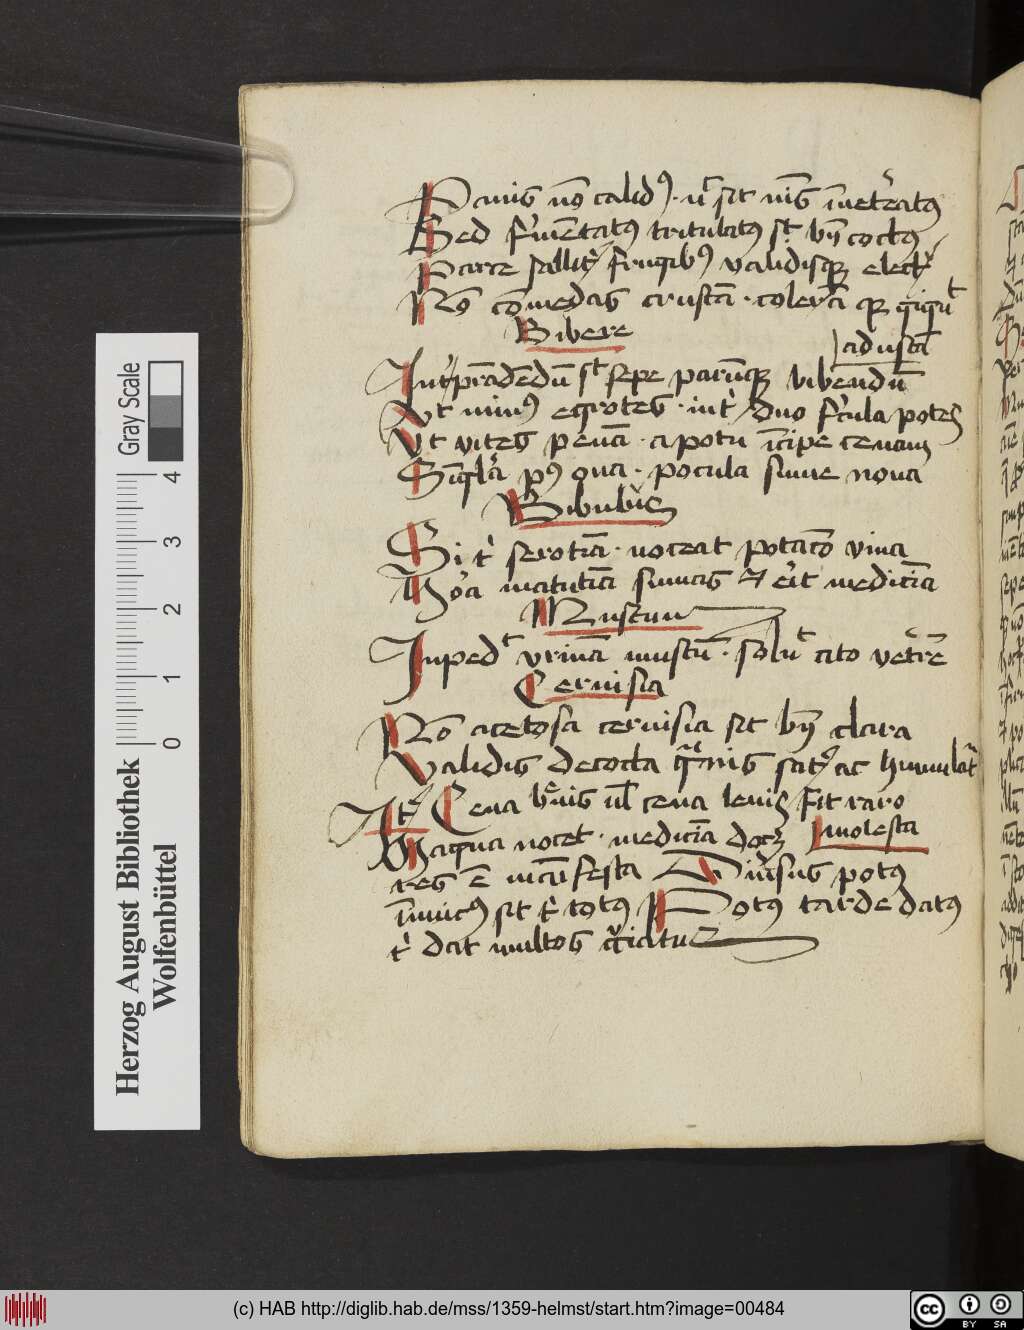 Panis nō calidꝯ · n̄ sit nīs īnet̄atꝯ
Sed f̄mētatꝯ tritulatꝯ sᵗ bn̄ coctꝯ
Parce sallitꝯ frugibꝯ validisqꝫ elect
Nō cōmedas crustā · colerā qꝫ gignᵗ
adustā
Bibere
Int̄ prādēdū sᵗ sepe parūqꝫ bibendū
Ut minꝯ egrotes · int̄ duo f̄cula potes
Ut vites penā · a potu īcipe cenam
Sīgl̄a pꝯ oua · pocula sume noua
Si t̄ serotīa · noceat potac̄o vina
Hōra matutīa sumas ⁊ er̄it medicīa
Mustum
Inpedᵗ vrinā mustū · soluᵗ cito vētrē
Ceruisia
Nō acetosa ceruisia sit bn̄ clara
Validis decocta gr̄nis satꝯ ac humulat̄
Itē Cena br̄uis ul̄ cena leuis fit raro
molesta
Magna nocet · medicīa docꝫ
res ē manifesta Diūsus potꝯ
īmicꝯ sit t̄ totꝯ Potꝯ tarde datꝯ
t̄ dat multos c̄ciatus
Gray Scale
0 1 2 3 4
Herzog August Bibliothek
Wolfenbüttel
(c) HAB http://diglib.hab.de/mss/1359-helmst/start.htm?image=00484
cc BY SA